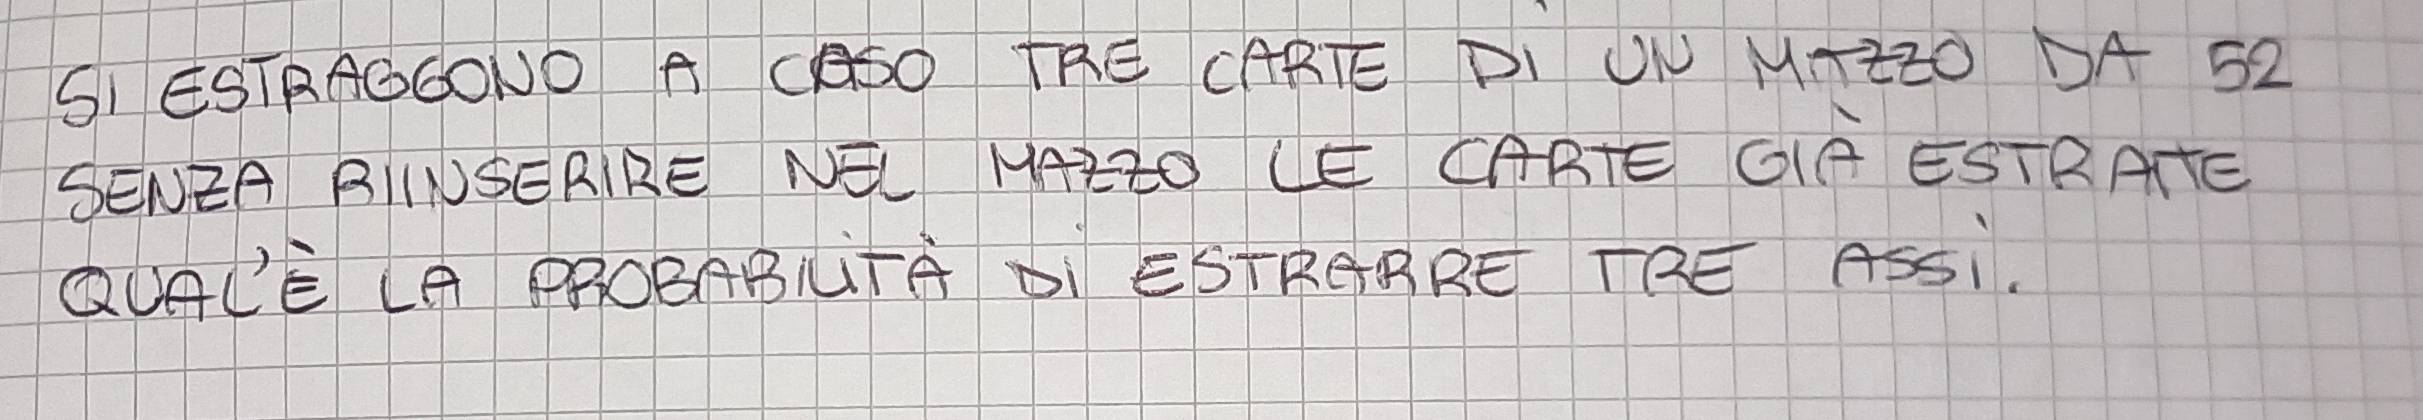 SI ESTRAGGONO A CASO TRE CARTE DI UN MAZZO DA 52
SENZA RIINSERIRE NEL MAZZO LE CARTE GIÀ ESTRATTE
QUAL'È LA PROBABILITÀ DI ESTRARRE TRE ASSI.